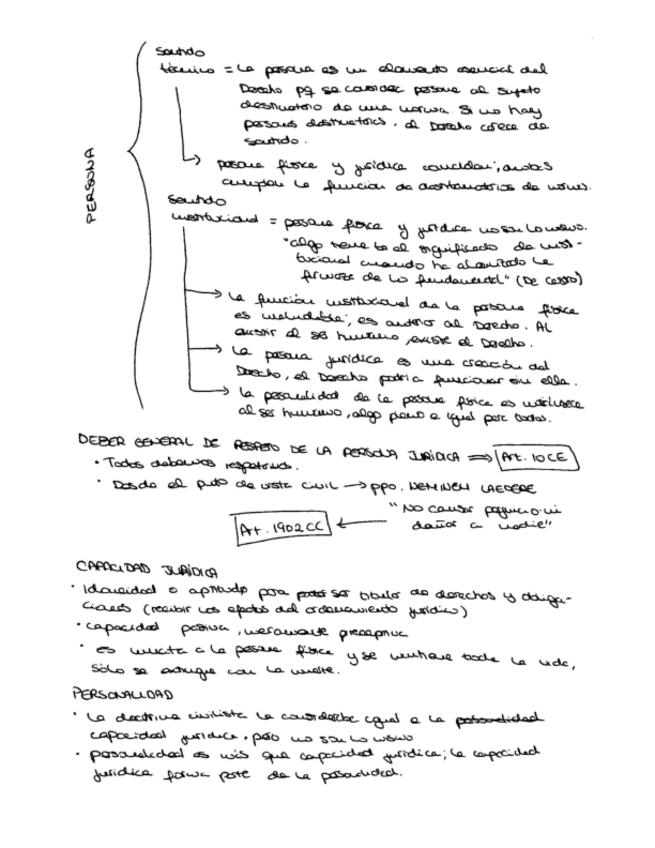 PERSONA
Sentido
técnico = La persona es un elemento esencial del
Derecho pq se considera persona al sujeto
destinatario de una norma. Si no hay
personas destinatarias, el Derecho carece de
sentido.
persona física y jurídica coinciden; ambas
cumplen la función de destinatarios de normas.
Sentido
institucional = persona física y jurídica no son lo mismo.
"algo tiene el significado de insti-
tucional cuando ha alcanzado la
firmeza de lo fundamental" (De Castro)
La función institucional de la persona física
es ineludible; es anterior al Derecho. Al
existir el ser humano, existe el Derecho.
La persona jurídica es una creación del
Derecho, el Derecho podría funcionar sin ella.
la personalidad de la persona física es
al ser humano, algo pleno e igual para todos.
DEBER GENERAL DE RESPETO DE LA PERSONA JURÍDICA ⇒ Art. 10 CE
• Todos debemos respetarnos.
• Desde el pnto de vista civil → ppo. NEMINEM LAEDERE
"No causar perjuicio ni
daños a nadie"
Art. 1902 CC
CAPACIDAD JURÍDICA
• Idoneidad o aptitud para poder ser titular de derechos y obliga-
ciones (recibir los efectos del ordenamiento jurídico)
• capacidad pasiva, meramente preceptiva
• es innata a la persona física y se mantiene toda la vida,
sólo se extingue con la muerte.
PERSONALIDAD
• La doctrina civilista la consideraba igual a la personalidad
capacidad jurídica, pero no son lo mismo
• personalidad es más que capacidad jurídica; la capacidad
jurídica forma parte de la personalidad.